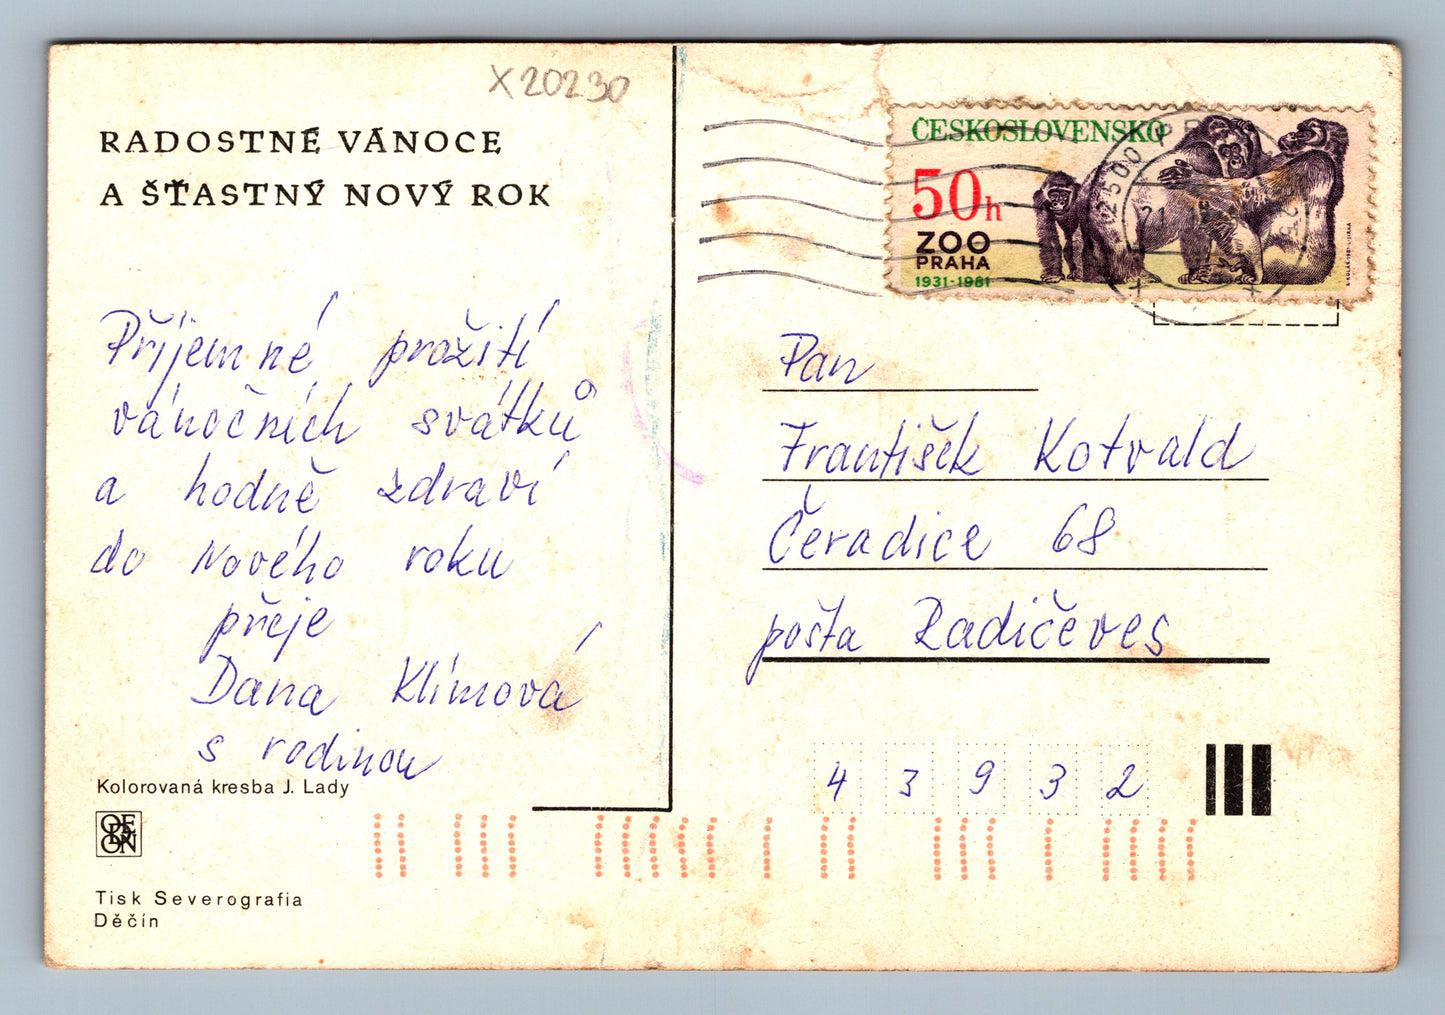 X 20230
RADOSTNÉ VÁNOCE
A ŠŤASTNÝ NOVÝ ROK
Příjemné prožití
vánočních svátků
a hodně zdraví
do Nového roku
přeje
Dana Klímová
s rodinou
Kolorovaná kresba J. Lady
ORBIS
Tisk Severografia
Děčín
ČESKOSLOVENSKO
50h
ZOO
PRAHA
1931-1981
Pan
František Kotvald
Čeradice 68
pošta Radičeves
43932